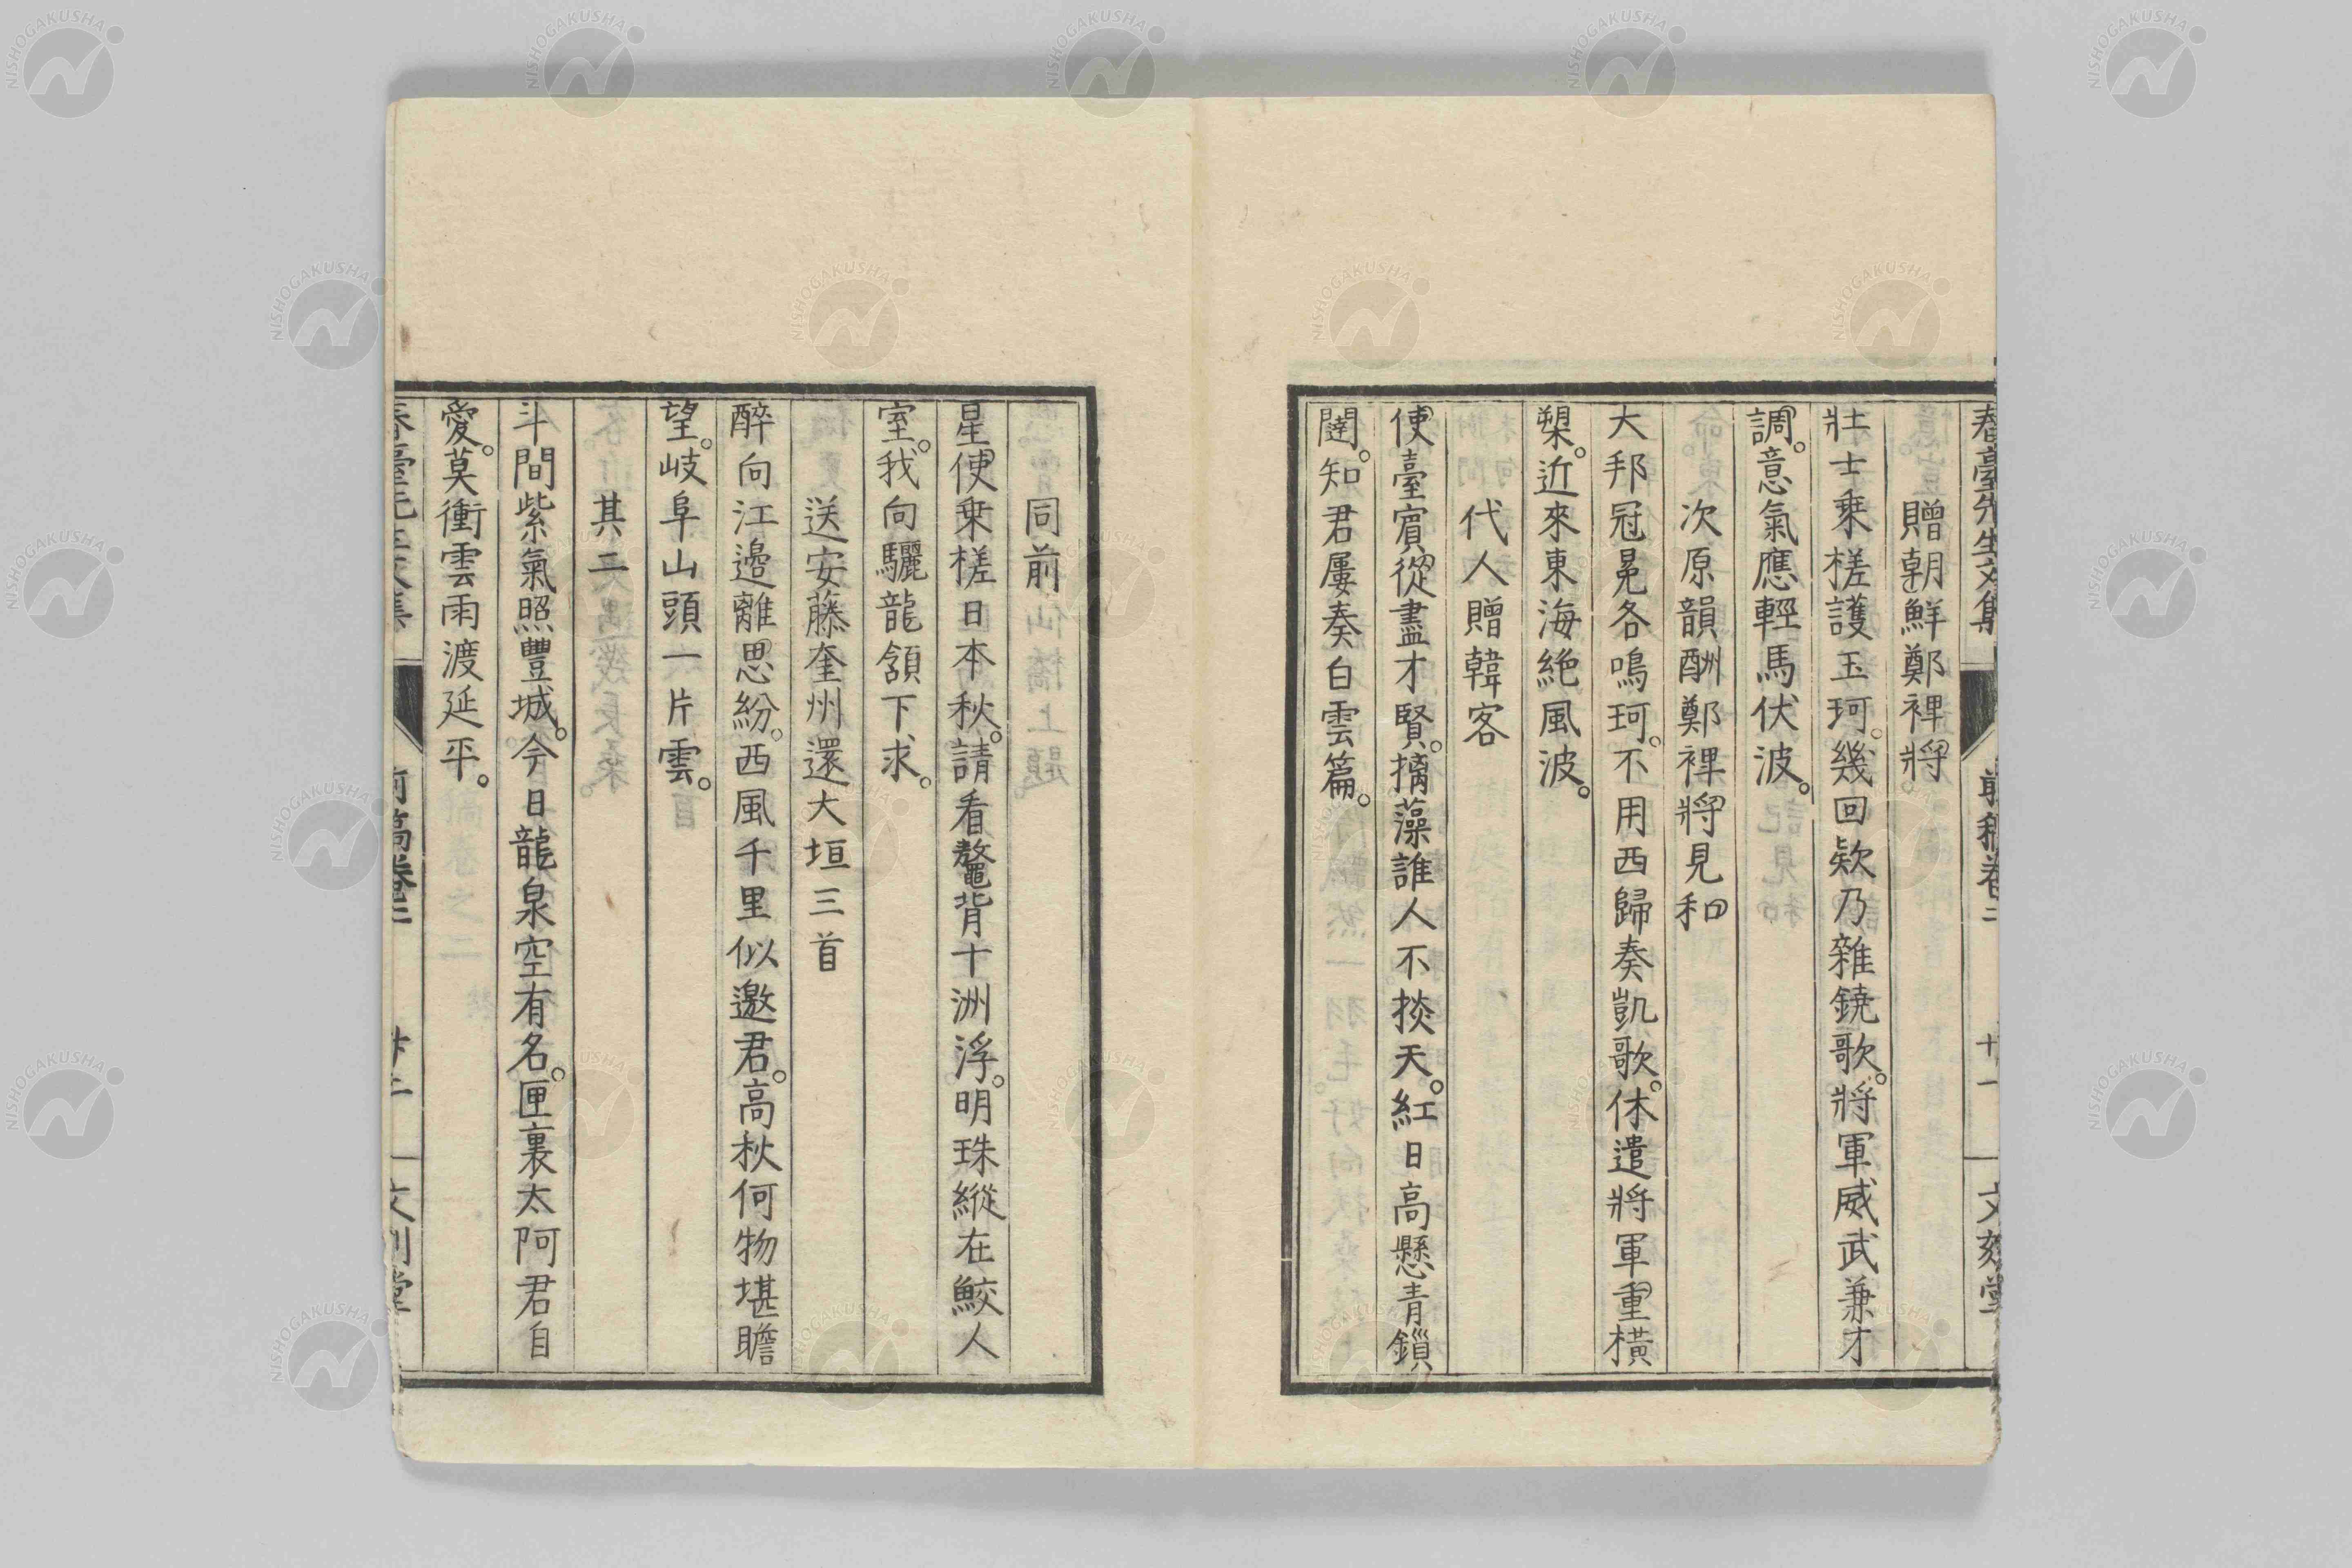 贈朝鮮鄭裨將
壯士乗槎護玉珂。幾回欵乃雜鐃歌。將軍威武兼才
調。意氣應輕馬伏波。
次原韻酬鄭裨將見和
大邦冠冕各鳴珂。不用西歸奏凱歌。休遣將軍重橫
槊。近來東海絶風波。
代人贈韓客
使臺賓從盡才賢。摛藻誰人不掞天。紅日高懸青鎻
闥。知君屢奏白雲篇。
同前
星使乗槎日本秋。請看鼇背十洲浮。明珠縱在鮫人
室。我向驪龍頷下求。
送安藤奎州還大垣三首
醉向江邉離思紛。西風千里似邀君。高秋何物堪瞻
望。岐阜山頭一片雲。
其二
斗間紫氣照豐城。今日龍泉空有名。匣裏太阿君自
愛。莫衝雲雨渡延平。
NISHOGAKUSHA